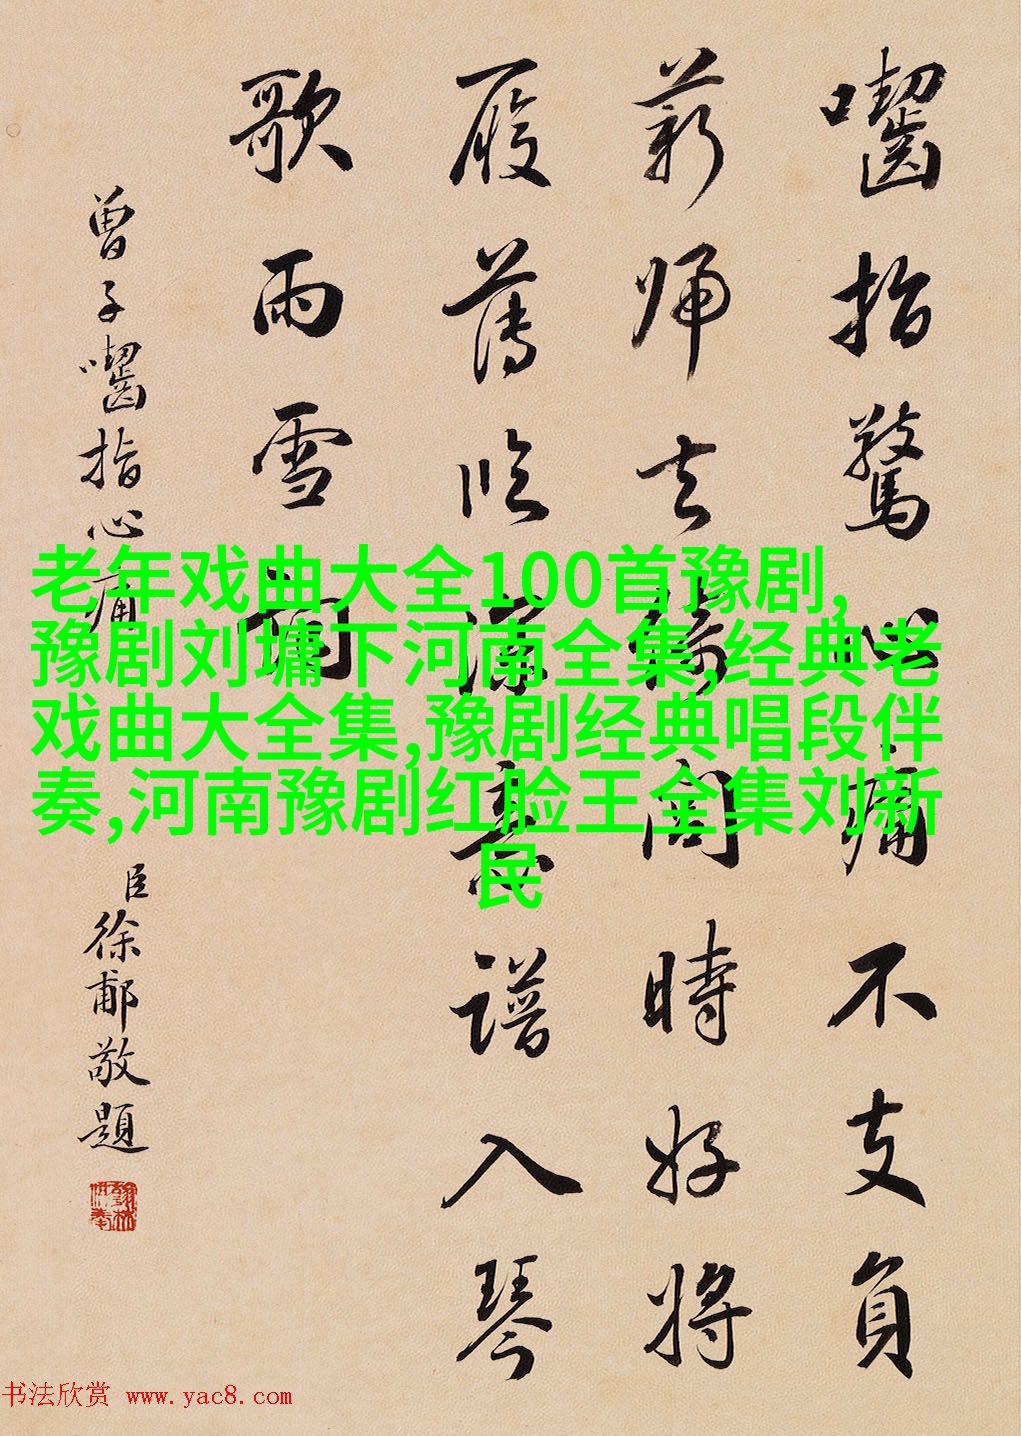 老年戏曲大全100首豫剧,
豫剧刘墉下河南全集,经典老
戏曲大全集,豫剧经典唱段伴
奏,河南豫剧红脸王全集刘新
民
囓指驚心痛不支負
薪歸去時好將
履薄臨深意譜入琴
歌雨雪
曾子囓指心痛
臣徐郙敬題
书法欣赏 www.yac8.com